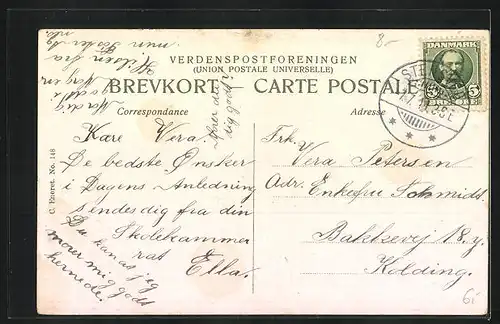 8.-
VERDENSPOSTFORENINGEN
(UNION POSTALE UNIVERSELLE)
BREVKORT – CARTE POSTALE
Correspondance
Adresse
DANMARK
5 ØRE 5
Kære Vera.
De bedste Ønsker
i Dagens Anledning
sendes dig fra din
Skolekammerat
Ella.
Du kan as jeg
morer mig godt
hernede.
Morer du
dig godt?
Hilsen fra
min
Frk.
Vera Petersen
Adr. Enkefru Schmidt
Bakkevej 18.y.
Kolding.
C. Eneret. No. 148
6.-